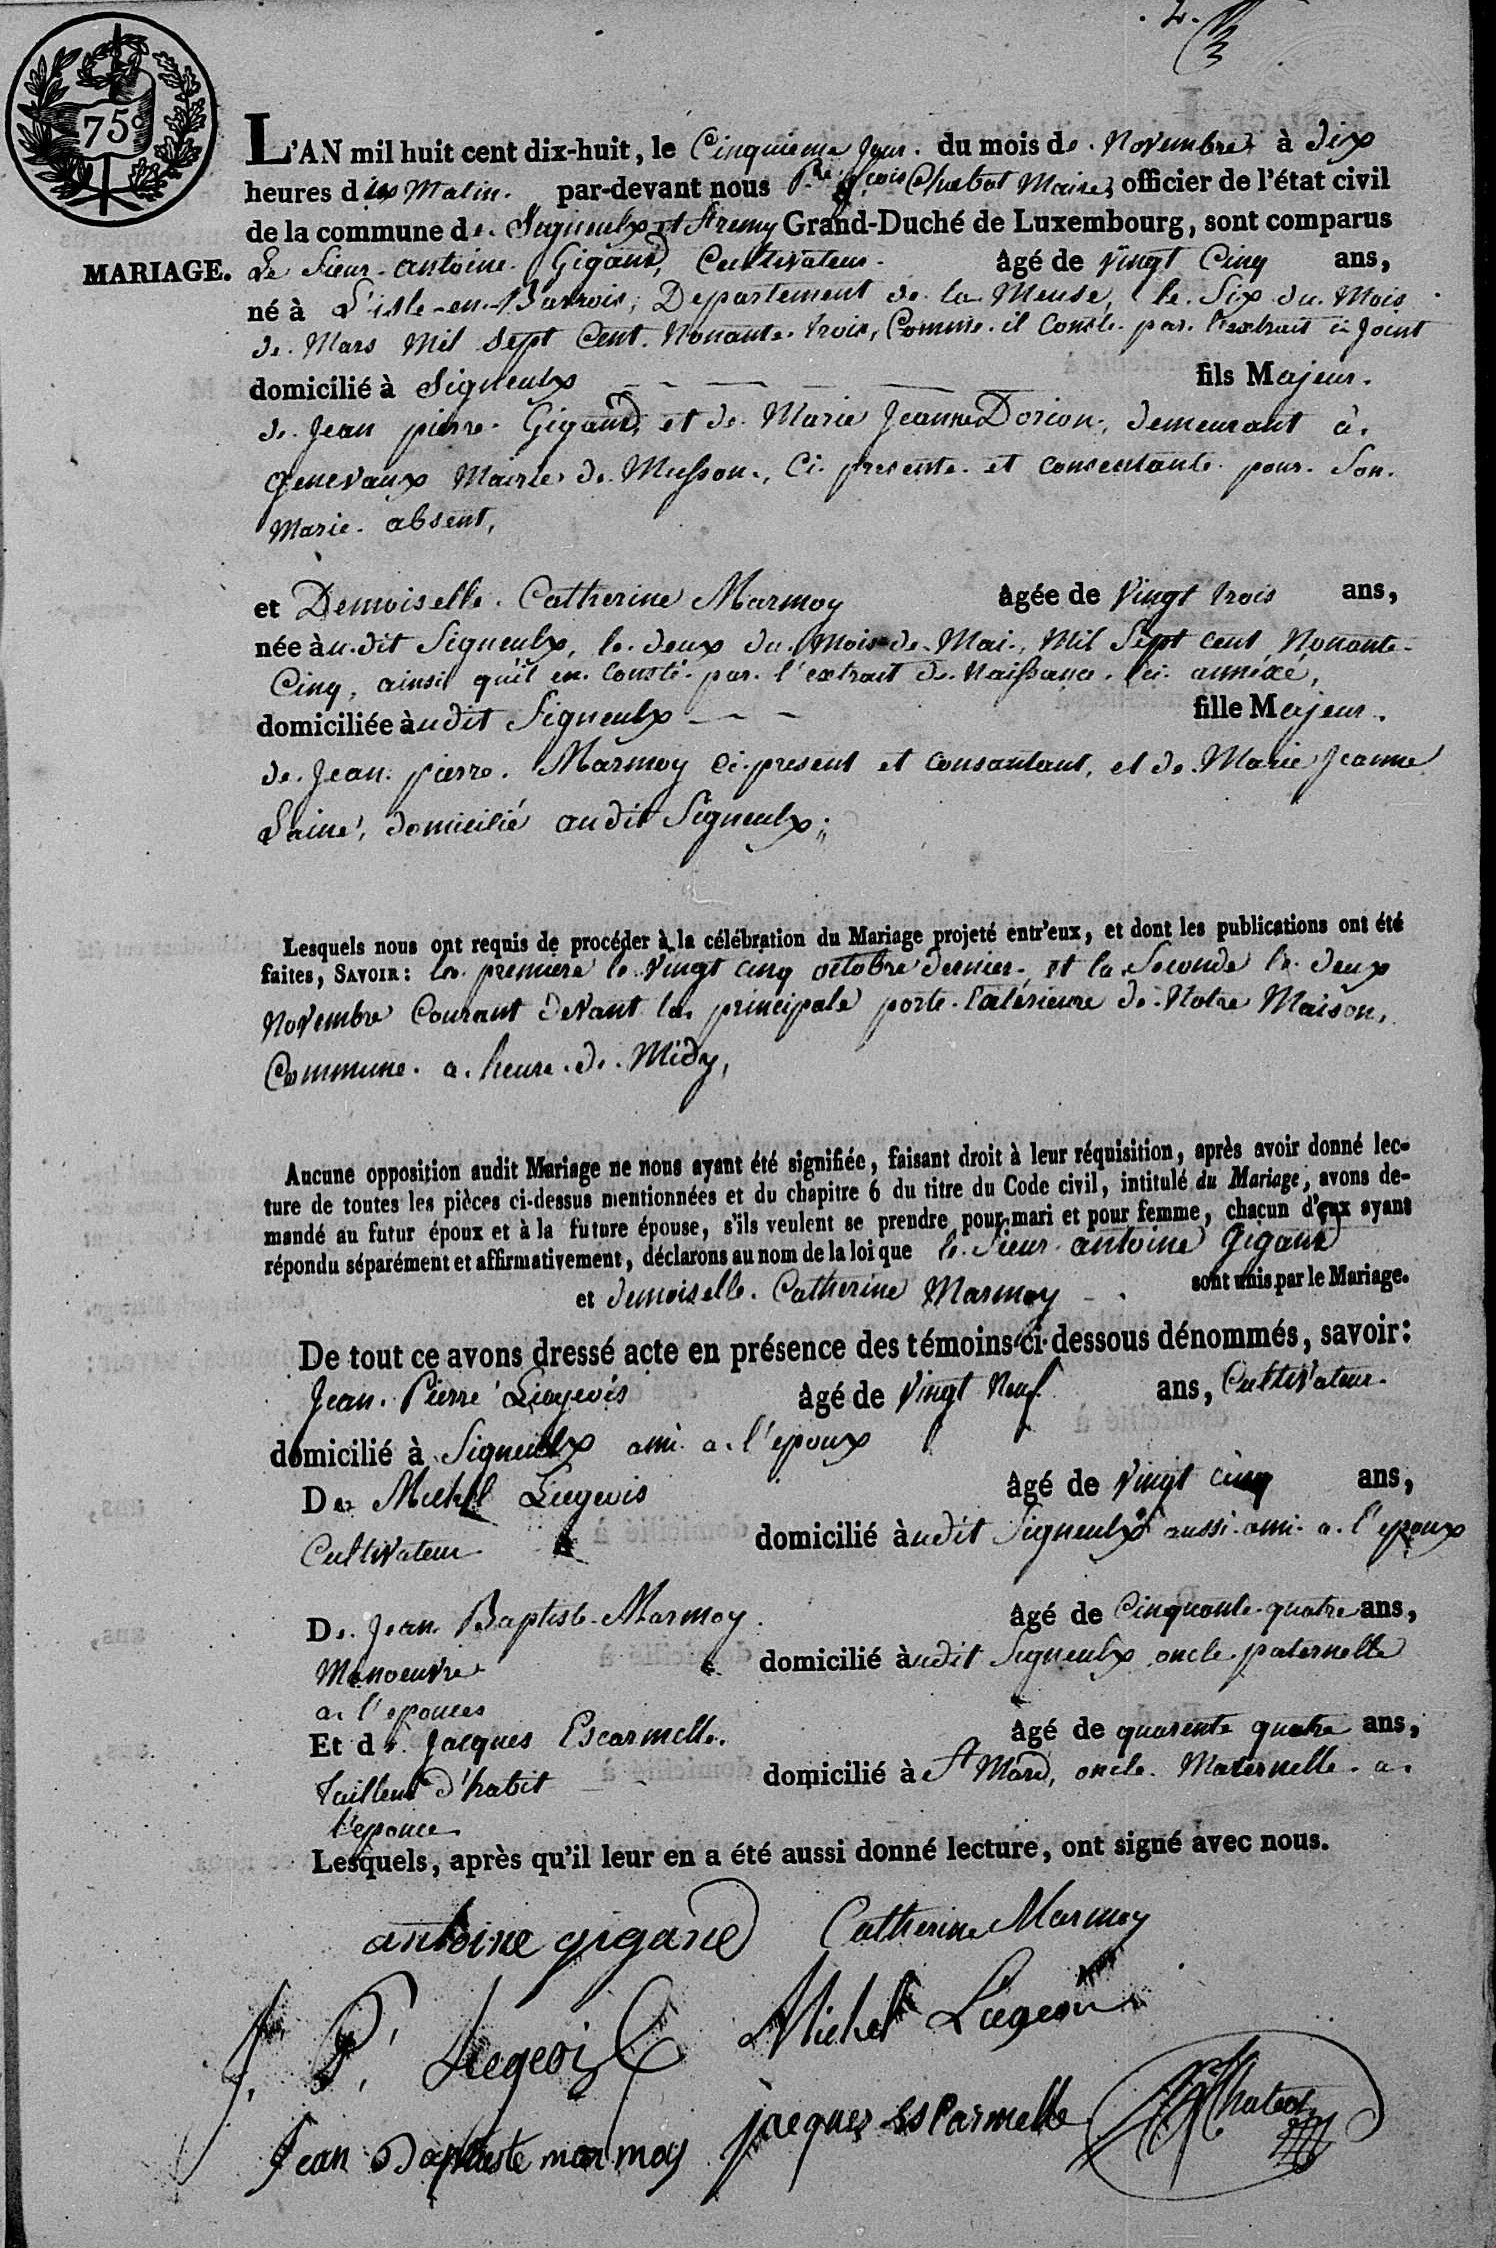 . 2.
75c
L'AN mil huit cent dix-huit, le Cinquieme Jour. du mois de. Novembre, à dix
heures du Matin. par-devant nous Pre. fcois Chabot Maire, officier de l'état civil
de la commune de. Signeulx et Grand-Duché de Luxembourg, sont comparus
MARIAGE. Le Sieur. antoine. Gigand, Cultivateur. âgé de vingt Cinq ans,
né à L'isle-en-Barrois, Departement de la Meuse, le. Six du. Mois
de. Mars Mil Sept Cent. Nonante. trois, Comme. il Conste. par. l'extrait ci Joint
domicilié à Signeulx fils Majeur.
de. Jean pierre. Gigand, et de. Marie Jeanne Dorion, demeurant à.
Genevaux Mairie de. Musson., Ci. presente. et consentante. pour. Son.
Marie. absent,
et Demoiselle. Catherine Marmoy âgée de vingt trois ans,
née àu.dit Signeulx, le. deux du. Mois de. Mai., Mil Sept cent Nonante-
Cinq, ainsi qu'il en. Conste. par. l'extrait de. Naissance. ci. annéxé,
domiciliée àudit Signeulx fille Majeur.
de. Jean. pierre. Marmoy Ci.present et consantant, et de. Marie Jeanne
Lainé, domicilié audit Signeulx;
Lesquels nous ont requis de procéder à la célébration du Mariage projeté entr'eux, et dont les publications ont été
faites, SAVOIR: la. premiere le. vingt cinq octobre dernier. et la Seconde le. deux
Novembre Courant devant la. principale porte. latérieure de. Notre Maison,
Commune. a. heure. de. Midy,
Aucune opposition audit Mariage ne nous ayant été signifiée, faisant droit à leur réquisition, après avoir donné lec-
ture de toutes les pièces ci-dessus mentionnées et du chapitre 6 du titre du Code civil, intitulé du Mariage, avons de-
mandé au futur époux et à la future épouse, s'ils veulent se prendre pour mari et pour femme, chacun d'eux ayant
répondu séparément et affirmativement, déclarons au nom de la loi que le. Sieur. antoine Gigand
et demoiselle. Catherine Marmoy sont unis par le Mariage.
De tout ce avons dressé acte en présence des témoins ci-dessous dénommés, savoir:
Jean. Pierre Liegeois âgé de vingt Neuf ans, Cultivateur.
domicilié à Signeulx ami. a. l'epoux
De Michel Liegeois âgé de vingt cinq ans,
Cultivateur domicilié àudit Signeulx aussi ami. a. l'epoux
De. Jean. Baptiste. Marmoy âgé de Cinquante. quatre ans,
Manoeuvre domicilié àudit Signeulx oncle. paternelle
a. l'epouce
Et de. Jacques Escarmelle. âgé de quarente quatre ans,
tailleur d'habit domicilié à St Mard, oncle. Maternelle. a.
l'epouce
Lesquels, après qu'il leur en a été aussi donné lecture, ont signé avec nous.
antoine gigand Catherine Marmoy
J. P. Liegeois Michel Liegeois
Jean Baptiste marmoy jacques escarmelle Chabot